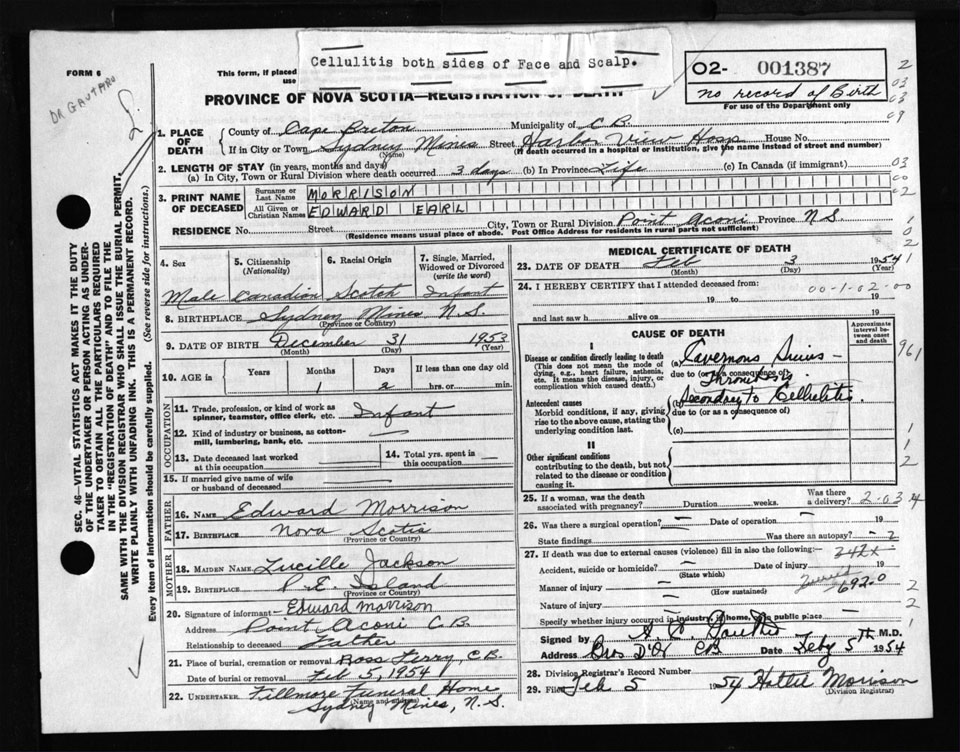 Cellulitis both sides of Face and Scalp.
FORM 6
This form, if placed
use
02- 001387
no record of Birth
For use of the Department only
2
03
03
09
PROVINCE OF NOVA SCOTIA—REGISTRATION OF DEATH
1. PLACE OF DEATH
County of Cape Breton Municipality of C.B.
If in City or Town Sydney Mines Street Harbor View Hosp House No.
(Name) (If death occurred in a hospital or institution, give the name instead of street and number)
2. LENGTH OF STAY (in years, months and days)
(a) In City, Town or Rural Division where death occurred 3 days (b) In Province Life (c) In Canada (if immigrant)
03
00
02
3. PRINT NAME OF DECEASED
Surname or Last Name MORRISON
All Given or Christian Names EDWARD EARL
RESIDENCE No. Street City, Town or Rural Division Point Aconi Province N.S.
(Residence means usual place of abode. Post Office Address for residents in rural parts not sufficient)
1
0
2
4. Sex Male
5. Citizenship (Nationality) Canadian
6. Racial Origin Scotch
7. Single, Married, Widowed or Divorced (write the word) Infant
8. BIRTHPLACE Sydney Mines N.S.
(Province or Country)
9. DATE OF BIRTH December 31 1953
(Month) (Day) (Year)
10. AGE in Years Months Days If less than one day old
1 2 hrs. or min.
OCCUPATION
11. Trade, profession, or kind of work as spinner, teamster, office clerk, etc. Infant
12. Kind of industry or business, as cotton-mill, lumbering, bank, etc. —
13. Date deceased last worked at this occupation
14. Total yrs. spent in this occupation
15. If married give name of wife or husband of deceased
FATHER
16. NAME Edward Morrison
17. BIRTHPLACE Nova Scotia
(Province or Country)
MOTHER
18. MAIDEN NAME Lucille Jackson
19. BIRTHPLACE P.E. Island
(Province or Country)
20. Signature of informant Edward Morrison
Address Point Aconi C.B.
Relationship to deceased Father
21. Place of burial, cremation or removal Ross Ferry, C.B.
Date of burial or removal Feb 5, 1954
22. UNDERTAKER Fillmore Funeral Home
(Name and address)
Sydney Mines, N.S.
MEDICAL CERTIFICATE OF DEATH
23. DATE OF DEATH Feb 3 1954
(Month) (Day) (Year)
1
24. I HEREBY CERTIFY that I attended deceased from:
00-1-02-00
19 to 19
and last saw h alive on 19
CAUSE OF DEATH
Approximate interval between onset and death
I
Disease or condition directly leading to death (This does not mean the mode of dying, e.g., heart failure, asthenia, etc. It means the disease, injury, or complication which caused death.)
(a) Cavernous Sinus
due to (or as a consequence of)
Thrombosis
Antecedent causes
Morbid conditions, if any, giving rise to the above cause, stating the underlying condition last.
(b) Secondary to Cellulitis
due to (or as a consequence of)
(c)
II
Other significant conditions contributing to the death, but not related to the disease or condition causing it.
961
1
1
2
25. If a woman, was the death associated with pregnancy? Duration weeks. Was there a delivery?
2-03 4
26. Was there a surgical operation? — Date of operation — 19
State findings Was there an autopsy? - 2
27. If death was due to external causes (violence) fill in also the following:—
Accident, suicide or homicide? — Date of injury 19
(State which)
Manner of injury —
(How sustained)
692.0
2
Nature of injury —
2
Specify whether injury occurred in industry, in home, in public place
1
Signed by M.D.
Address Bras D'Or CB Date Feby 5th 1954
28. Division Registrar's Record Number
29. Filed Feb 5 1954 Hattie Morrison
(Division Registrar)
DR GAUTARO
SEC. 46—VITAL STATISTICS ACT MAKES IT THE DUTY
OF THE UNDERTAKER OR PERSON ACTING AS UNDER-
TAKER TO OBTAIN ALL THE PARTICULARS REQUIRED
IN THE "REGISTRATION OF DEATH" AND TO FILE THE
SAME WITH THE DIVISION REGISTRAR WHO SHALL ISSUE THE BURIAL PERMIT.
WRITE PLAINLY WITH UNFADING INK. THIS IS A PERMANENT RECORD.
Every item of information should be carefully supplied. (See reverse side for instructions.)